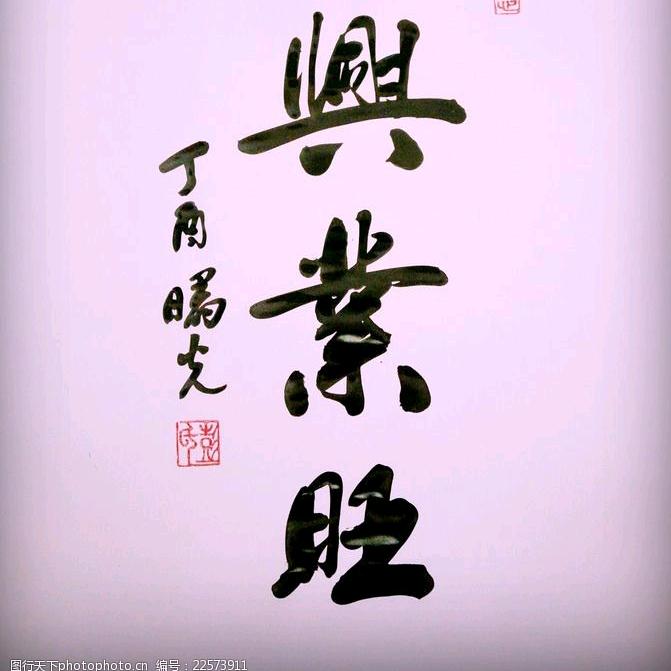 興業旺
丁酉曙光
彭氏
图行天下photophoto.cn 编号：22573911